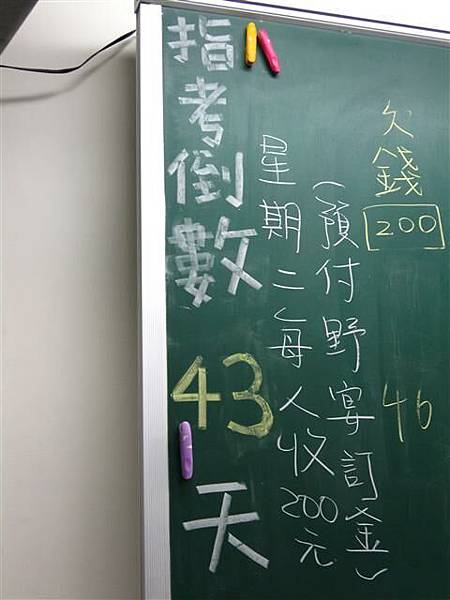 指考倒數 43 天
星期二每人收200元
(預付野宴訂金)
欠錢
200
46